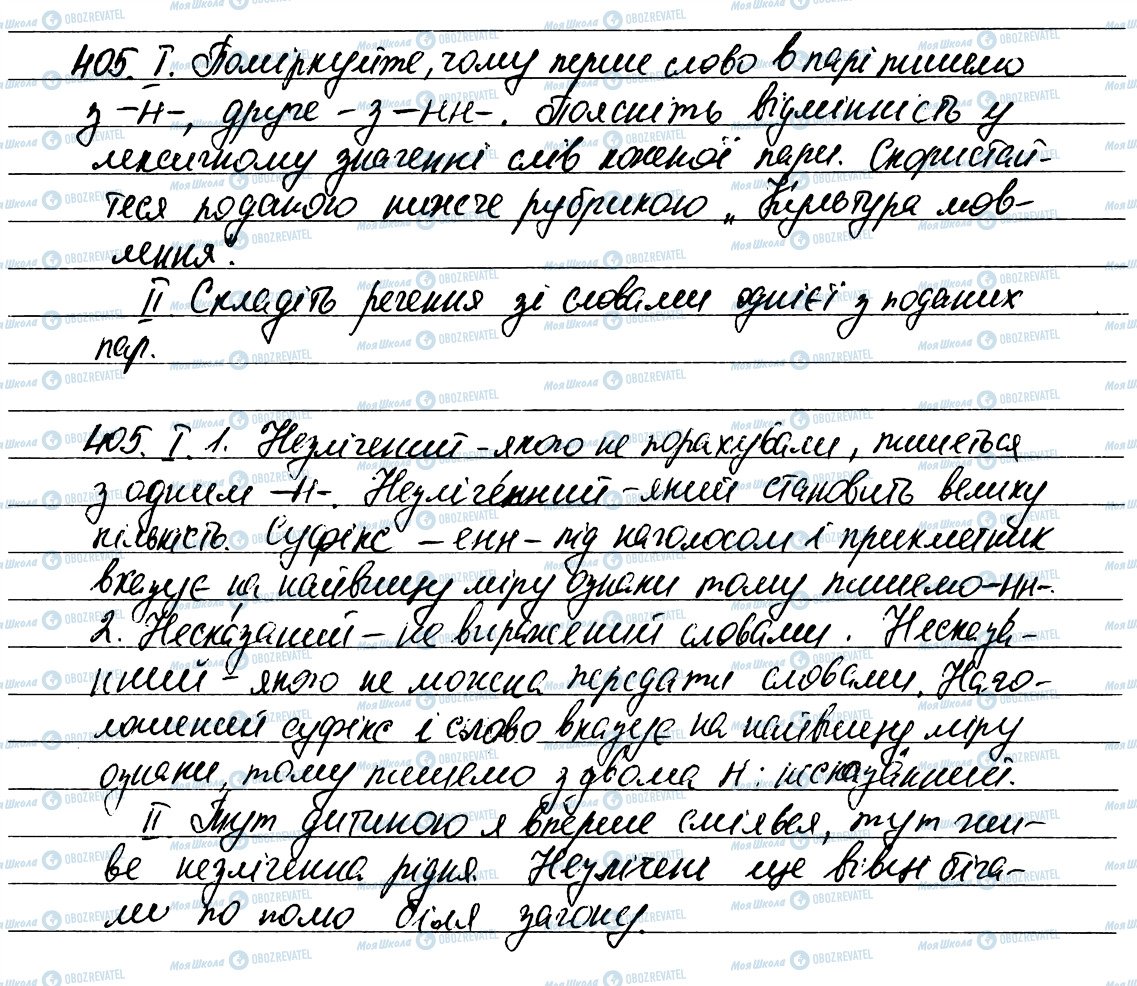 405. I. Поміркуйте, чому перше слово в парі пишемо
з -н-, друге - з -нн-. Поясніть відмінність у
лексичному значенні слів кожної пари. Скористай-
теся поданою нижче рубрикою „Культура мов-
лення".
II. Складіть речення зі словами однієї з поданих
пар.
405. I. 1. Незлічений - якого не порахували, пишеться
з одним -н-. Незлічéнний - який становить велику
кількість. Суфікс - енн - під наголосом і прикметник
вказує на найвищу міру ознаки тому пишемо -нн-.
2. Нескáзаний - не виражений словами. Несказа-
нний - якого не можна передати словами. Наго-
лошений суфікс і слово вказує на найвищу міру
ознаки, тому пишемо з двома н: несказáнний.
II. Тут дитиною я вперше сміявся, тут жи-
ве незліченна рідня. Незлічені ще вівці біга-
ли по полю біля загону.